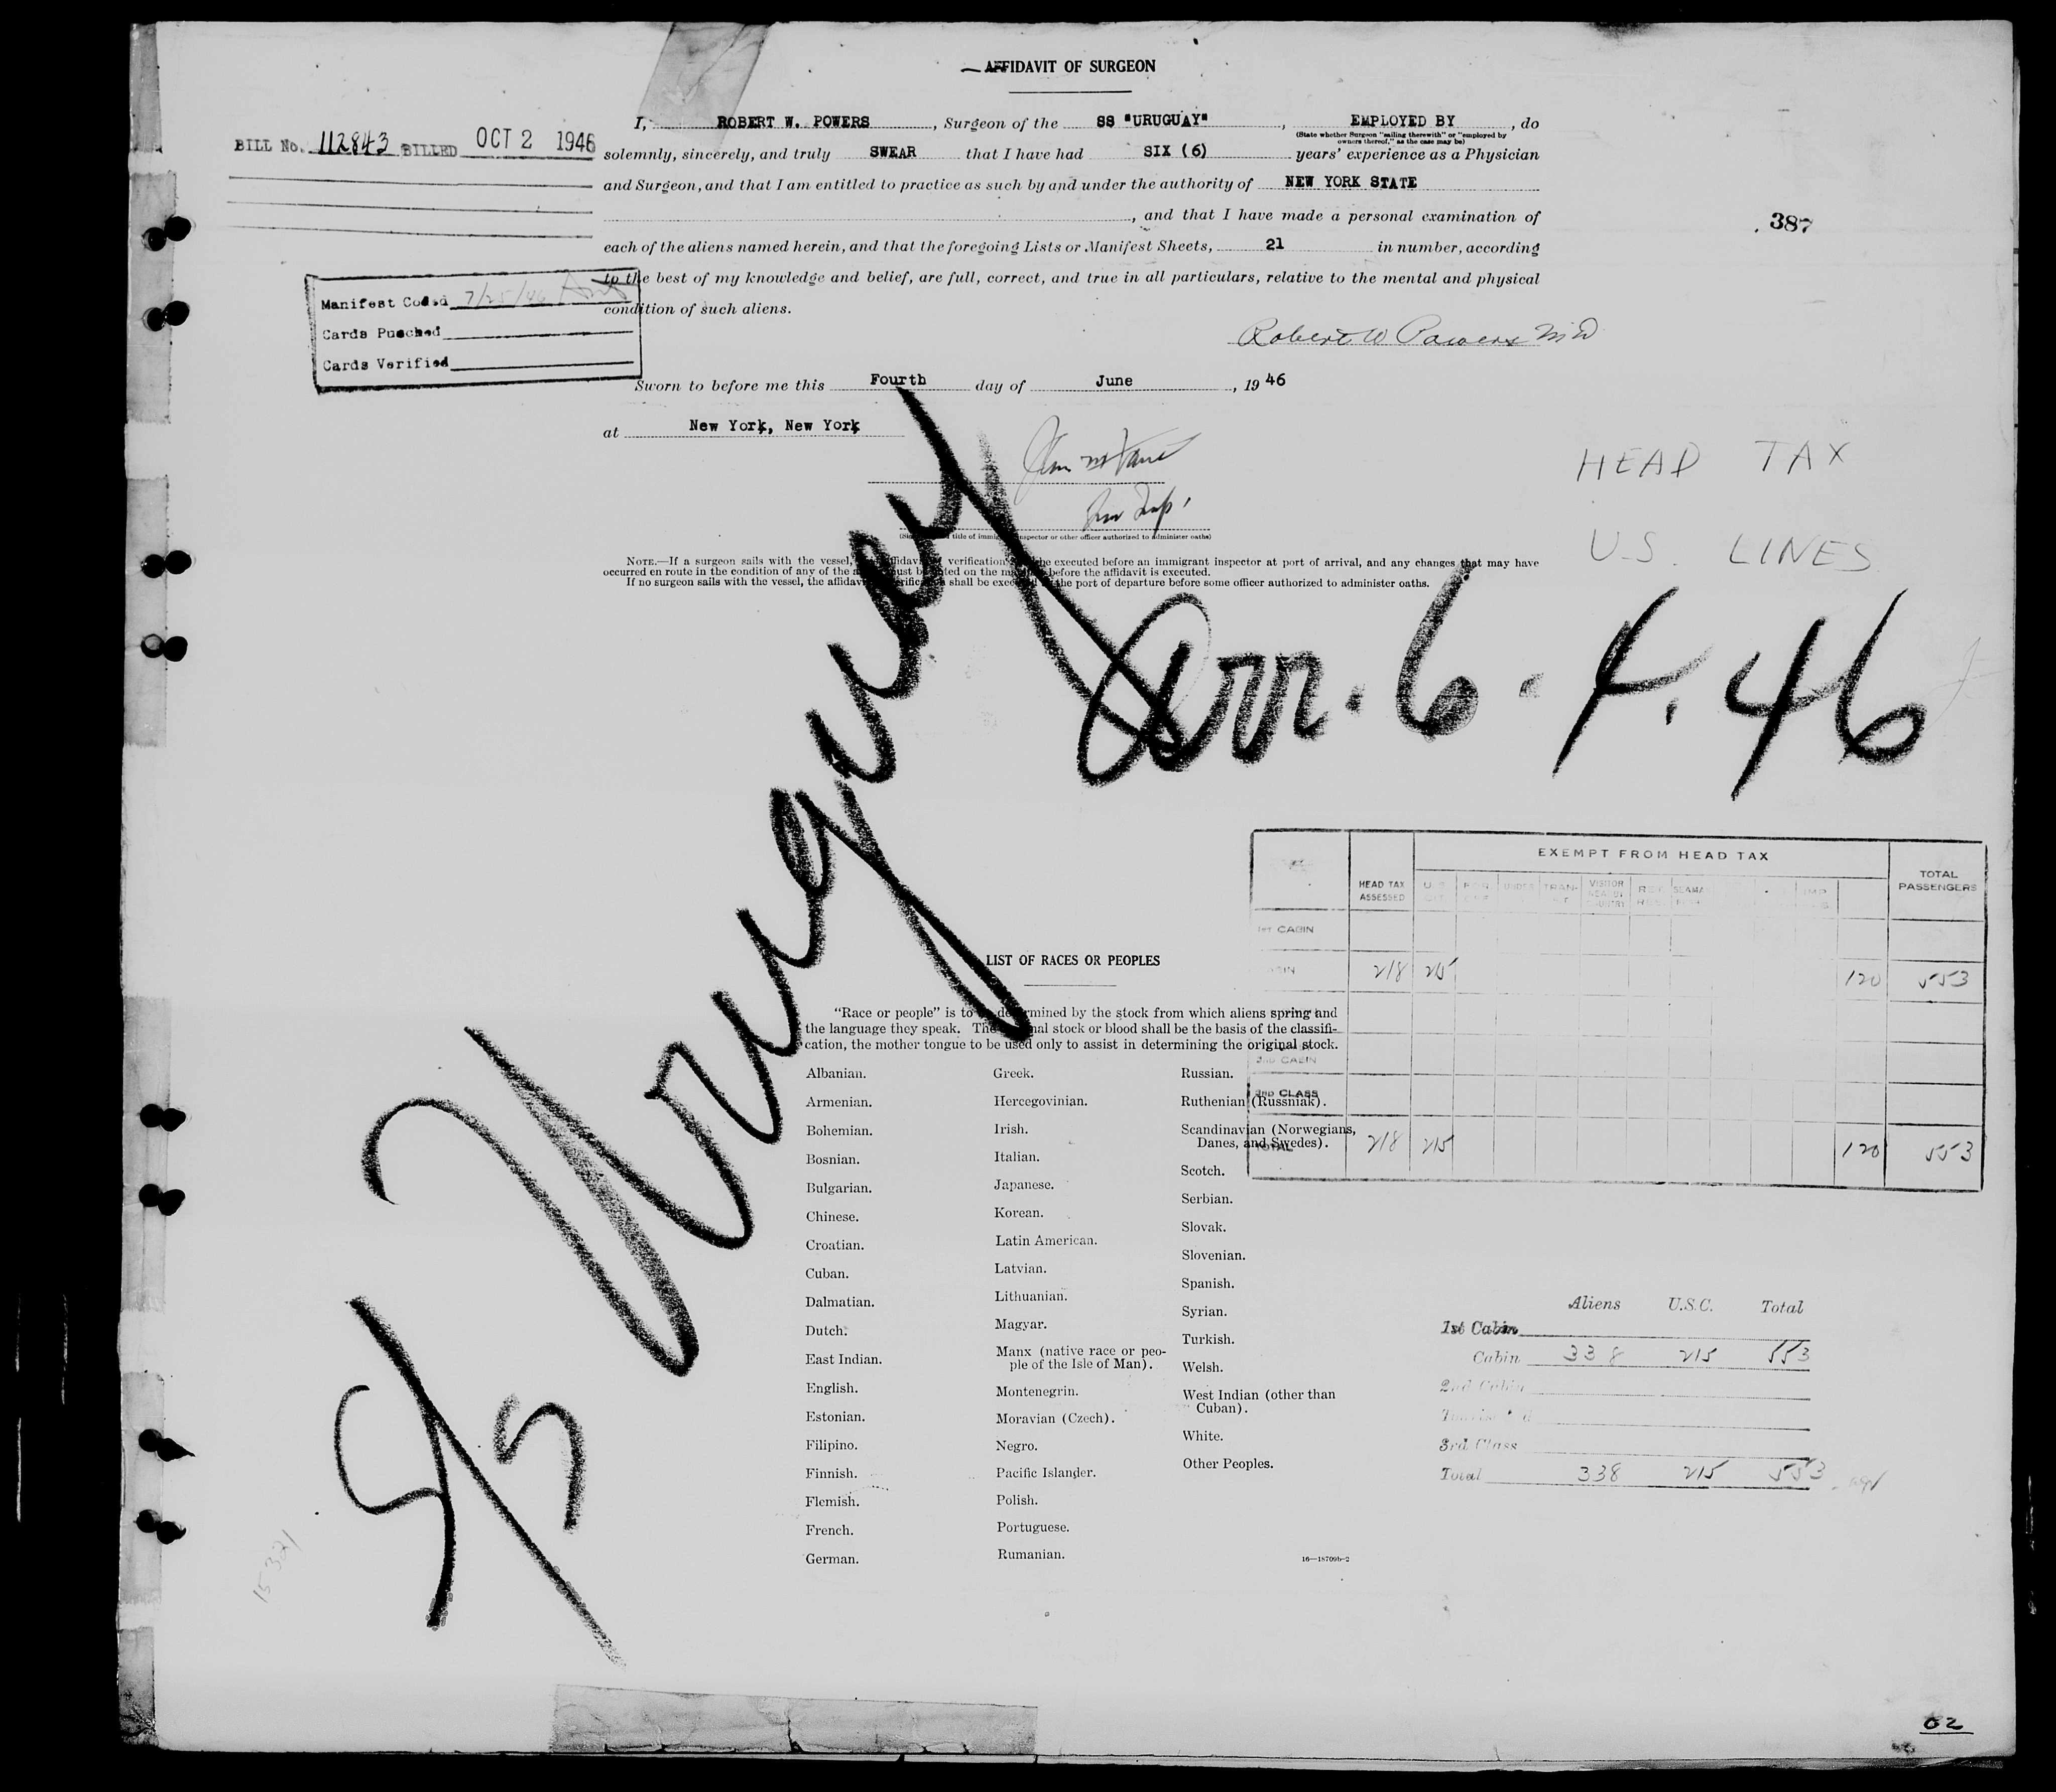 AFFIDAVIT OF SURGEON
I, ROBERT W. POWERS, Surgeon of the SS "URUGUAY", EMPLOYED BY, do
(State whether Surgeon "sailing therewith" or "employed by
owners thereof," as the case may be)
BILL No. 112843 BILLED OCT 2 1946
solemnly, sincerely, and truly SWEAR that I have had SIX (6) years' experience as a Physician
and Surgeon, and that I am entitled to practice as such by and under the authority of NEW YORK STATE
, and that I have made a personal examination of
387
each of the aliens named herein, and that the foregoing Lists or Manifest Sheets, 21 in number, according
to the best of my knowledge and belief, are full, correct, and true in all particulars, relative to the mental and physical
condition of such aliens.
Manifest Coded 7/25/46
Cards Punched
Cards Verified
Robert W Powers MD
Sworn to before me this Fourth day of June, 19 46
at New York, New York
title of immigrant inspector or other officer authorized to administer oaths)
HEAD TAX
U.S. LINES
NOTE.—If a surgeon sails with the vessel, affidavit verification be executed before an immigrant inspector at port of arrival, and any changes that may have
occurred en route in the condition of any of the must be noted on the before the affidavit is executed.
If no surgeon sails with the vessel, the affidavit verification shall be executed the port of departure before some officer authorized to administer oaths.
S/S Uruguay
Arr. 6. 4. 46
EXEMPT FROM HEAD TAX
HEAD TAX ASSESSED
TOTAL PASSENGERS
1ST CABIN
218 215 120 553
2ND CABIN
3RD CLASS
TOTAL 218 215 120 553
LIST OF RACES OR PEOPLES
"Race or people" is to be determined by the stock from which aliens spring and
the language they speak. The original stock or blood shall be the basis of the classifi-
cation, the mother tongue to be used only to assist in determining the original stock.
Albanian.
Armenian.
Bohemian.
Bosnian.
Bulgarian.
Chinese.
Croatian.
Cuban.
Dalmatian.
Dutch.
East Indian.
English.
Estonian.
Filipino.
Finnish.
Flemish.
French.
German.
Greek.
Hercegovinian.
Irish.
Italian.
Japanese.
Korean.
Latin American.
Latvian.
Lithuanian.
Magyar.
Manx (native race or peo-
ple of the Isle of Man).
Montenegrin.
Moravian (Czech).
Negro.
Pacific Islander.
Polish.
Portuguese.
Rumanian.
Russian.
Ruthenian (Russniak).
Scandinavian (Norwegians,
Danes, and Swedes).
Scotch.
Serbian.
Slovak.
Slovenian.
Spanish.
Syrian.
Turkish.
Welsh.
West Indian (other than
Cuban).
White.
Other Peoples.
16—18709b-2
Aliens U.S.C. Total
1st Cabin
Cabin 338 215 553
2nd Cabin
3rd Class
Total 338 215 553
15321
02